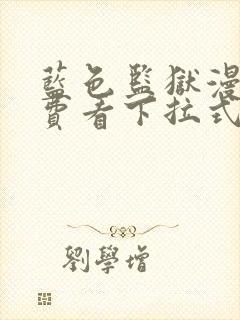 藍色監獄漫
費看下拉式
劉學增